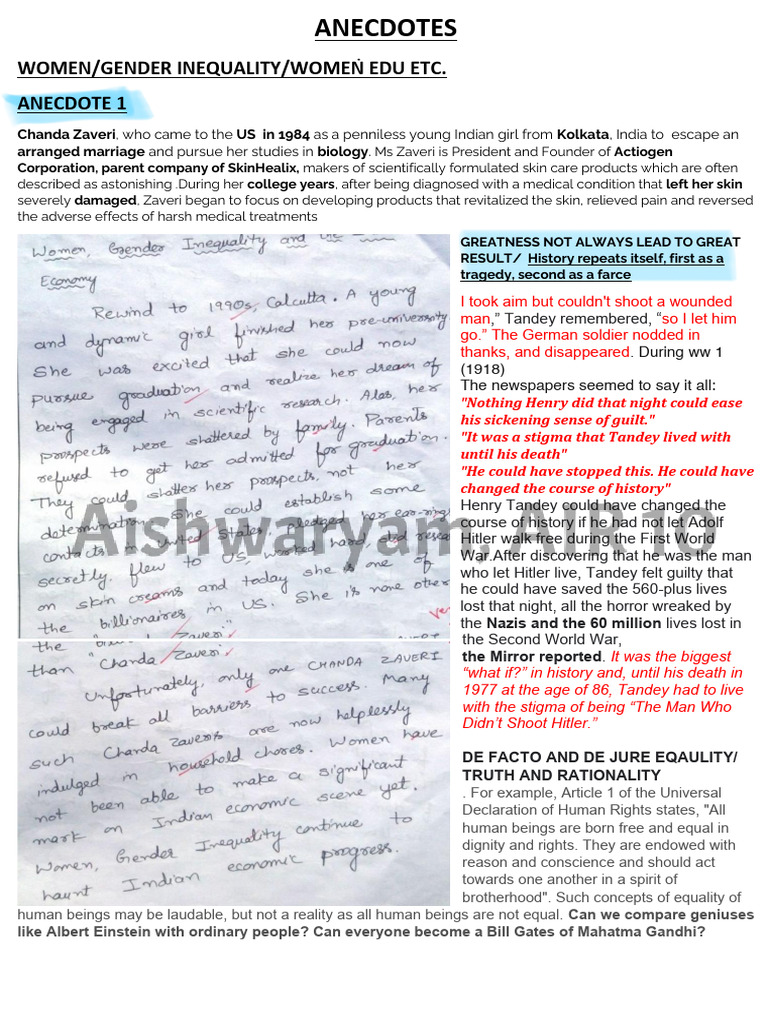 ANECDOTES
WOMEN/GENDER INEQUALITY/WOMEN EDU ETC.
ANECDOTE 1
Chanda Zaveri, who came to the US in 1984 as a penniless young Indian girl from Kolkata, India to escape an
arranged marriage and pursue her studies in biology. Ms Zaveri is President and Founder of Actiogen
Corporation, parent company of SkinHealix, makers of scientifically formulated skin care products which are often
described as astonishing .During her college years, after being diagnosed with a medical condition that left her skin
severely damaged, Zaveri began to focus on developing products that revitalized the skin, relieved pain and reversed
the adverse effects of harsh medical treatments
Women, Gender Inequality and the
Economy
Rewind to 1990s, Calcutta. A young
and dynamic girl finished her pre-university
She was excited that she could now
pursue graduation and realize her dream of
being engaged in scientific research. Alas, her
prospects were shattered by family. Parents
refused to get her admitted for graduation.
They could shatter her prospects, not her
determination. She could establish some
contacts in United States, pledged her ear-rings
secretly, flew to US, worked hard, did resea
on skin creams and today she is one of
the billionaires in US. She is none other
the
than "Chanda Zaveri".
Unfortunately, only one CHANDA ZAVERI
could break all barriers to success. Many
such Chanda Zaveris are now helplessly
indulged in household chores. Women have
not been able to make a significant
mark on Indian economic scene yet.
Women, Gender Inequality continue to
haunt Indian economic progress.
GREATNESS NOT ALWAYS LEAD TO GREAT
RESULT/ History repeats itself, first as a
tragedy, second as a farce
I took aim but couldn't shoot a wounded
man,” Tandey remembered, “so I let him
go.” The German soldier nodded in
thanks, and disappeared. During ww 1
(1918)
The newspapers seemed to say it all:
"Nothing Henry did that night could ease
his sickening sense of guilt."
"It was a stigma that Tandey lived with
until his death"
"He could have stopped this. He could have
changed the course of history"
Henry Tandey could have changed the
course of history if he had not let Adolf
Hitler walk free during the First World
War.After discovering that he was the man
who let Hitler live, Tandey felt guilty that
he could have saved the 560-plus lives
lost that night, all the horror wreaked by
the Nazis and the 60 million lives lost in
the Second World War,
the Mirror reported. It was the biggest
“what if?” in history and, until his death in
1977 at the age of 86, Tandey had to live
with the stigma of being “The Man Who
Didn’t Shoot Hitler.”
DE FACTO AND DE JURE EQAULITY/
TRUTH AND RATIONALITY
. For example, Article 1 of the Universal
Declaration of Human Rights states, "All
human beings are born free and equal in
dignity and rights. They are endowed with
reason and conscience and should act
towards one another in a spirit of
brotherhood". Such concepts of equality of
human beings may be laudable, but not a reality as all human beings are not equal. Can we compare geniuses
like Albert Einstein with ordinary people? Can everyone become a Bill Gates of Mahatma Gandhi?
Aishwaryam, AIR 10